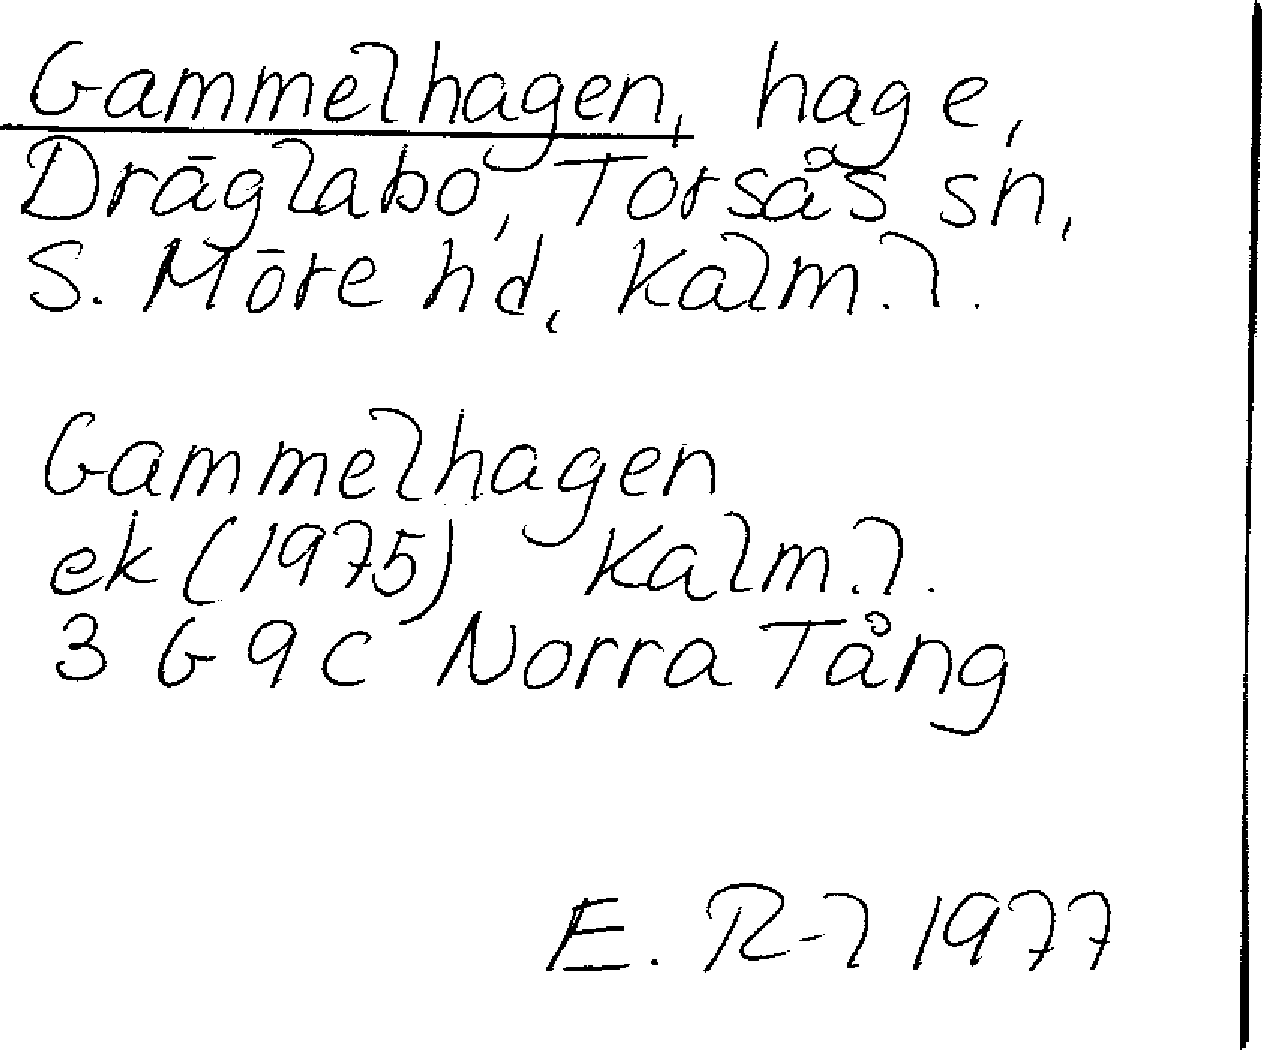 Gammelhagen, hage,
Dräglabo, Torsås sn,
S. Möre hd, Kalm. l.
Gammelhagen
ek (1975) Kalm. l.
3 G 9 c Norra Tång
E. R-l 1977